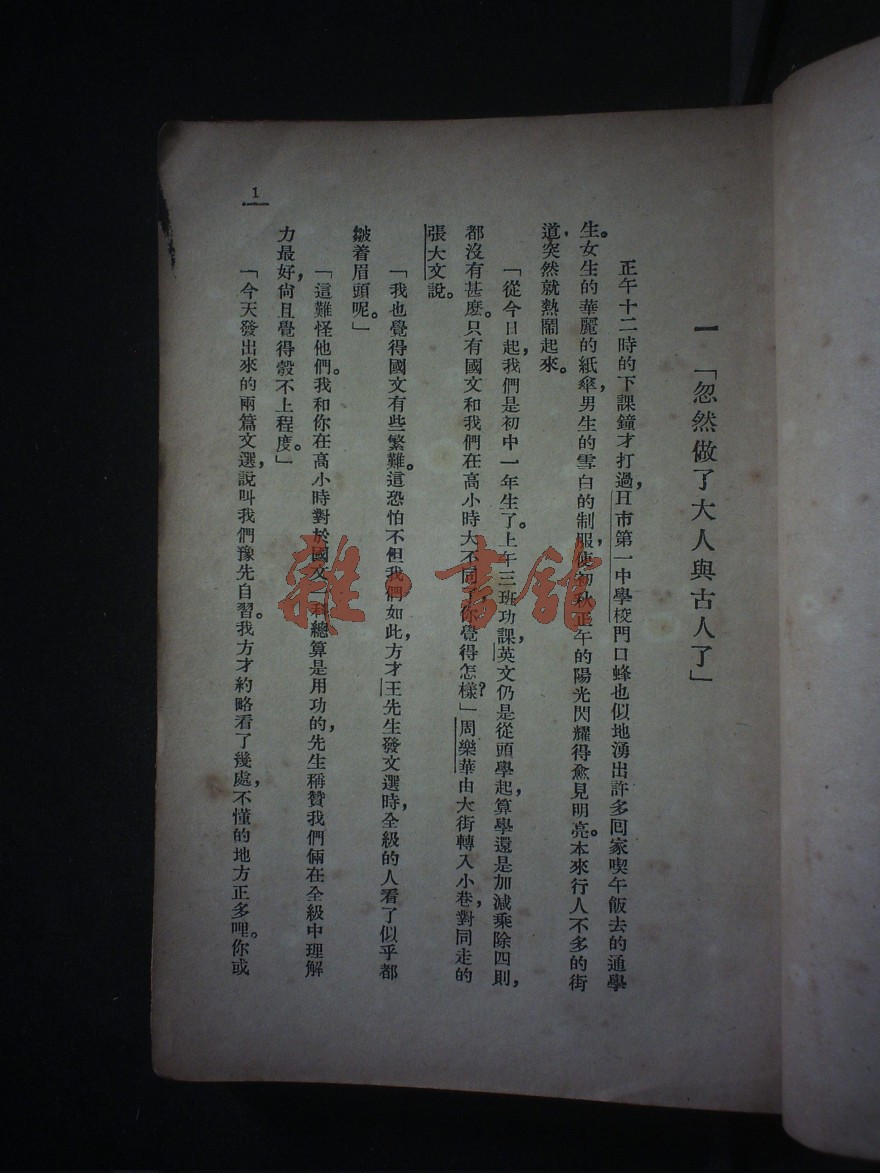 一 「忽然做了大人與古人了」
正午十二時的下課鐘才打過，H市第一中學校門口蜂也似地湧出許多回家喫午飯去的通學
生。女生的華麗的紙傘，男生的雪白的制服，使初秋正午的陽光閃耀得愈見明亮。本來行人不多的街
道，突然就熱鬧起來。
「從今日起，我們是初中一年生了。上午三班功課，英文仍是從頭學起，算學還是加減乘除四則，
都沒有甚麼。只有國文和我們在高小時大不同了，你覺得怎樣？」周樂華由大街轉入小巷，對同走的
張大文說。
「我也覺得國文有些繁難。這恐怕不但我們如此，方才王先生發文選時，全級的人看了似乎都
皺着眉頭呢。」
「這難怪他們。我和你在高小時對於國文一科總算是用功的，先生稱贊我們倆在全級中理解
力最好，尙且覺得彀不上程度。」
「今天發出來的兩篇文選，說叫我們豫先自習。我方才約略看了幾處，不懂的地方正多哩。你或
1
雜·書館